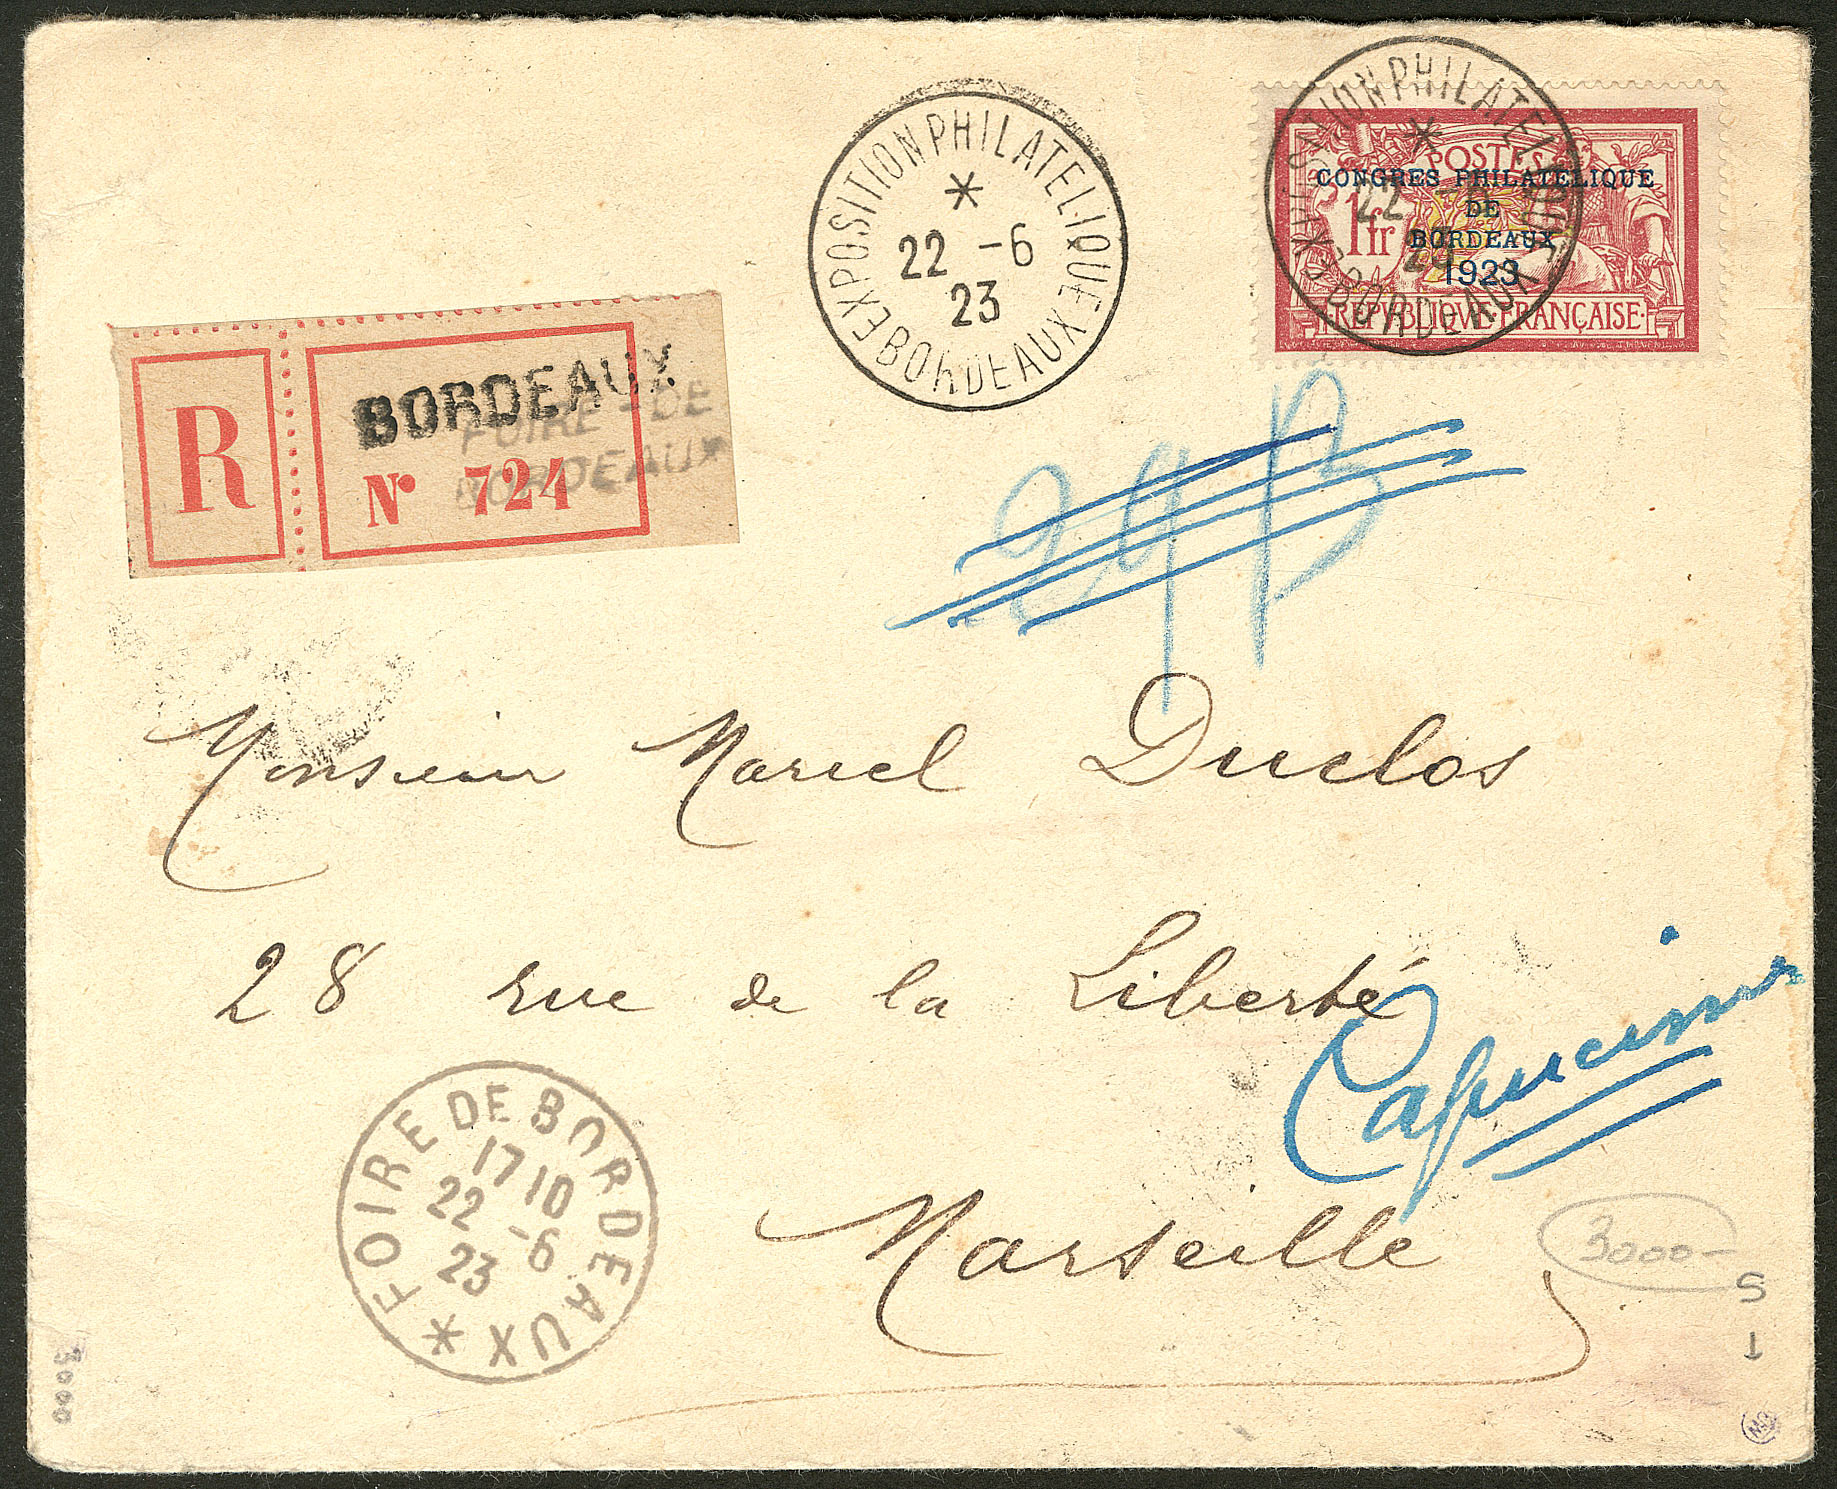 EXPOSITION PHILATELIQUE
*
22 -6
23
BORDEAUX
EXPOSITION PHILATELIQUE
*
22
23
BORDEAUX
POSTES
1fr
REPUBLIQUE·FRANÇAISE
CONGRES PHILATELIQUE
DE
BORDEAUX
1923
R
BORDEAUX
FOIRE-DE
BORDEAUX
N° 724
29 B
Monsieur Marcel Duclos
28 rue de la Liberté
Capucines
Marseille
FOIRE DE BORDEAUX
17 10
22 -6
23
*
3000-
S
1
3000